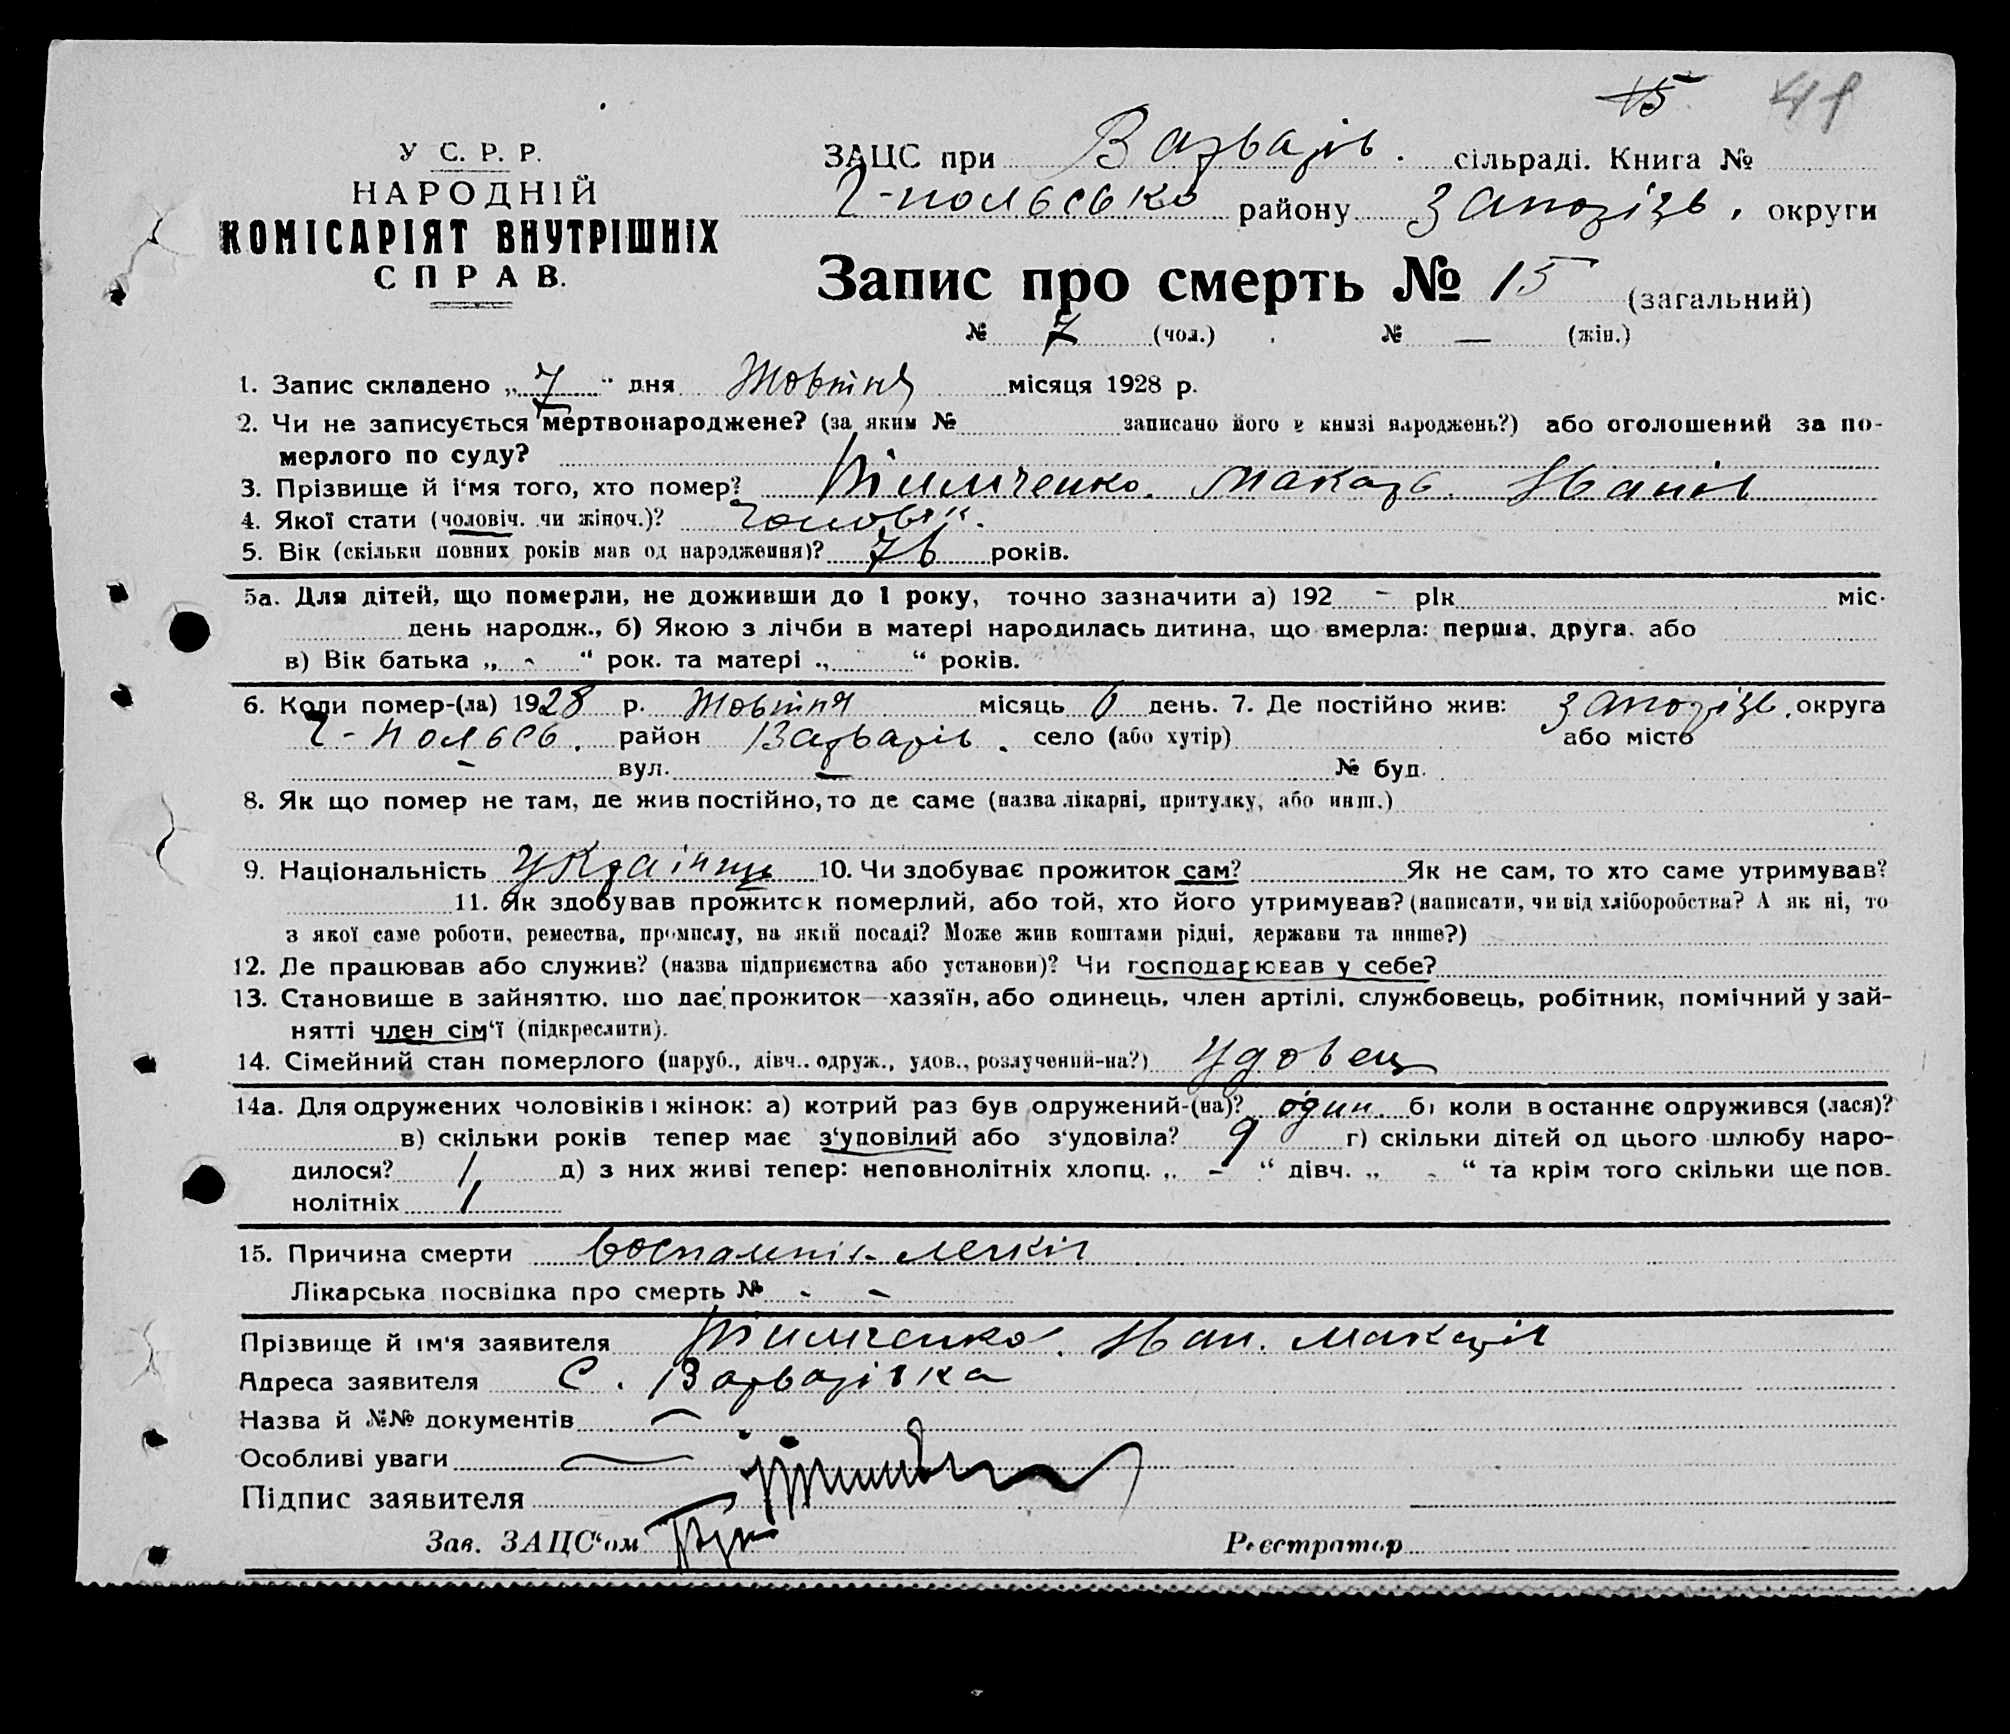 15 41
У С. Р. Р.
НАРОДНІЙ
КОМІСАРІЯТ ВНУТРІШНІХ
СПРАВ.
ЗАЦС при Варварів. сільраді. Книга №
Г-польсько району Запорізь. округи
Запис про смерть № 15 (загальний)
№ 7 (чол.) № — (жін.)
1. Запис складено „ 7 “ дня Жовтня місяця 1928 р.
2. Чи не записується мертвонароджене? (за яким № записано його в книзі народжень?) або оголошений за по-
мерлого по суду?
3. Прізвище й і‘мя того, хто помер? Тімченко. Макарь. Іванів
4. Якої стати (чоловіч. чи жіноч.)? Чоловік.
5. Вік (скільки повних років мав од народження)? 76 років.
5а. Для дітей, що померли, не доживши до 1 року, точно зазначити а) 192 - рік міс.
день народж., б) Якою з лічби в матері народилась дитина, що вмерла: перша, друга, або
в) Вік батька „ - “ рок. та матері „ “ років.
6. Коли помер-(ла) 1928 р. Жовтня місяць 6 день. 7. Де постійно жив: Запорізь. округа
Г-польсь. район Варварів. село (або хутір) або місто
- вул. — № буд.
8. Як що помер не там, де жив постійно, то де саме (назва лікарні, притулку, або инш.)
9. Національність Українць 10. Чи здобуває прожиток сам? Як не сам, то хто саме утримував?
11. Як здобував прожиток померлий, або той, хто його утримував? (написати, чи від хліборобства? А як ні, то
з якої саме роботи, ремества, промислу, на якій посаді? Може жив коштами рідні, держави та инше?)
12. Де працював або служив? (назва підприємства або установи)? Чи господарював у себе?
13. Становище в зайняттю, що дає прожиток—хазяїн, або одинець, член артілі, службовець, робітник, помічний у зай-
нятті член сім‘ї (підкреслити).
14. Сімейний стан померлого (паруб., дівч.. одруж., удов., розлучений-на?) Удовец
14а. Для одружених чоловіків і жінок: а) котрий раз був одружений-(на)? один. б) коли в останнє одружився (лася)?
в) скільки років тепер має з‘удовілий або з‘удовіла? 9 г) скільки дітей од цього шлюбу наро-
дилося? 1 д) з них живі тепер: неповнолітніх хлопц. „ - “ дівч. „ - “ та крім того скільки ще пов.
нолітніх 1
15. Причина смерти воспаленія легкіх
Лікарська посвідка про смерть № - -
Прізвище й ім‘я заявителя Тимченко. Иван. Макарів
Адреса заявителя С. Варварівка
Назва й №№ документів —
Особливі уваги —
Підпис заявителя
Зав. ЗАЦС‘ом
Реєстратор